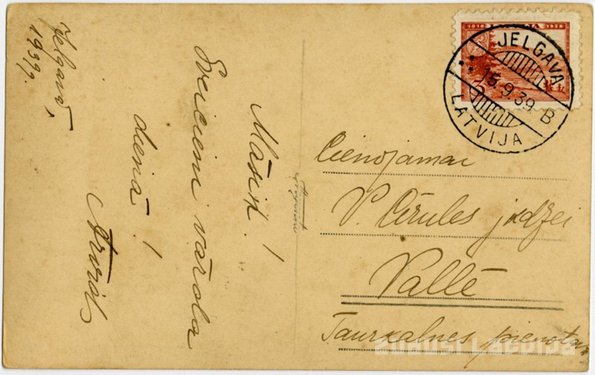 Jelgavā,
1939.g.
Māsiņ!
Sveiciens vārda
dienā!
Cienījamai
V. Cīrules jdzei
Vallē
Taurkalnes pienotav
JELGAVA
15.9.39. B
LATVIJA
1918
1938